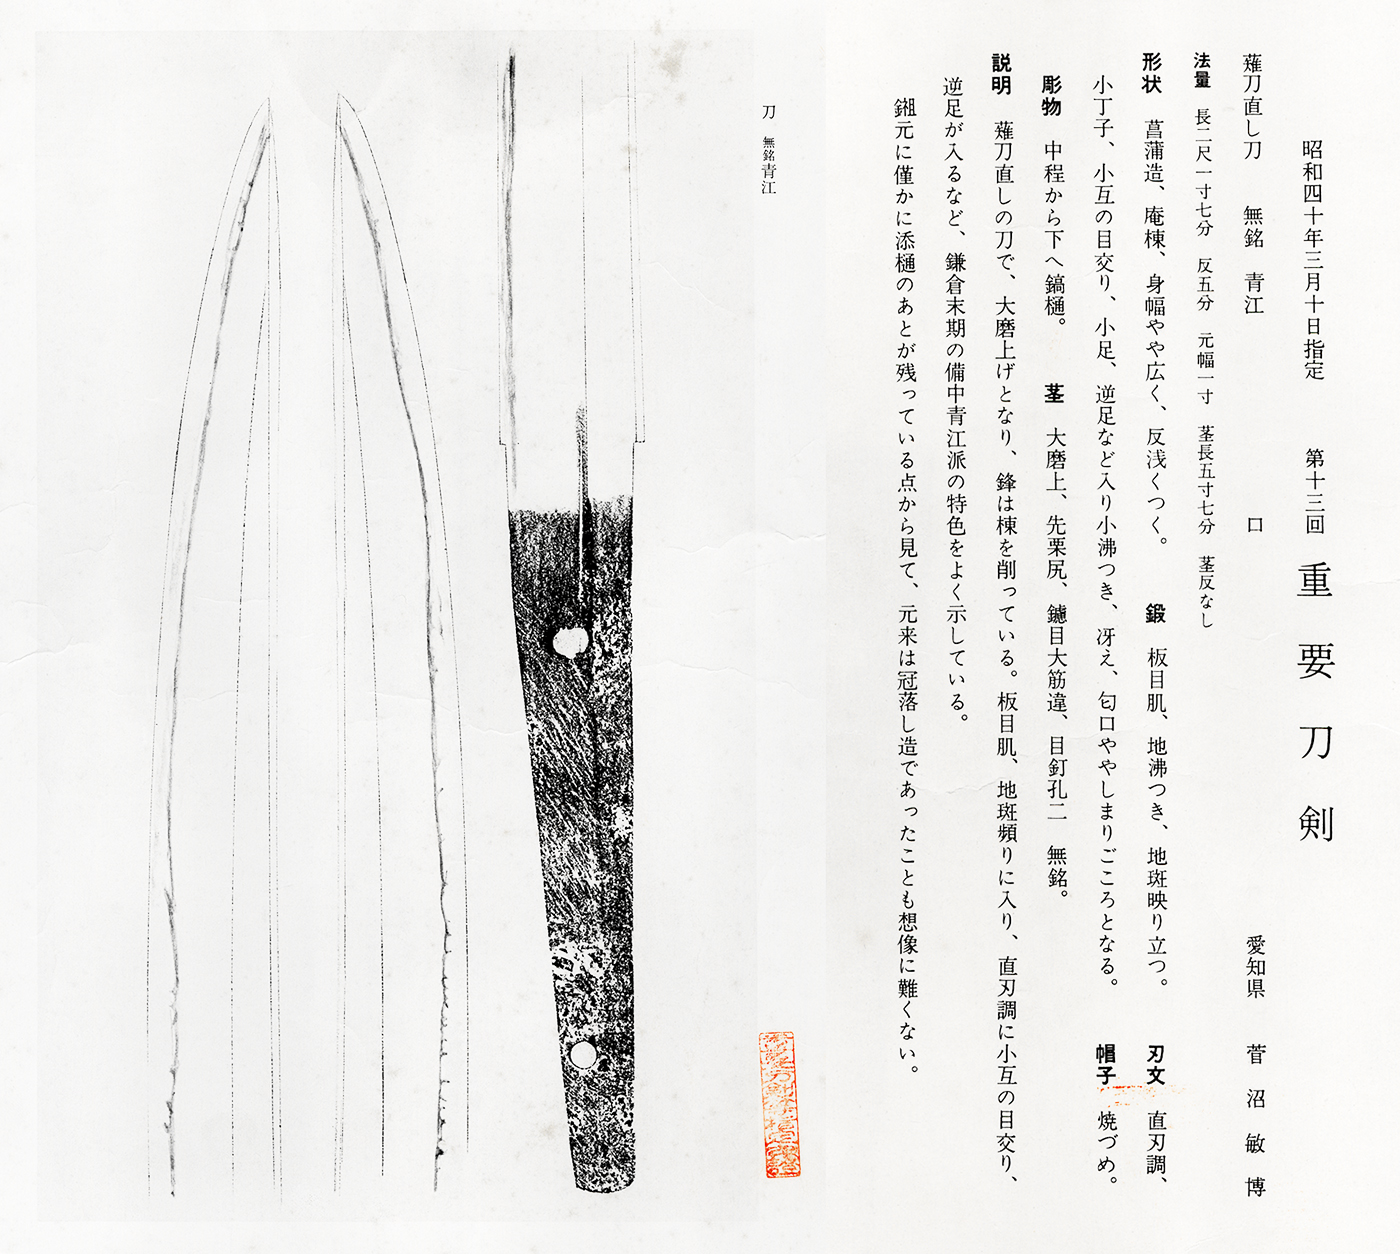 昭和四十年三月十日指定　第十三回　重要刀剣
薙刀直し刀　無銘　青江　口　愛知県　菅沼敏博
法量　長二尺一寸七分　反五分　元幅一寸　茎長五寸七分　茎反なし
形状　菖蒲造、庵棟、身幅やや広く、反浅くつく。　鍛　板目肌、地沸つき、地斑映り立つ。　刃文　直刃調、
小丁子、小互の目交り、小足、逆足など入り小沸つき、冴え、匂口ややしまりごころとなる。　帽子　焼づめ。
彫物　中程から下へ鎬樋。　茎　大磨上、先栗尻、鑢目大筋違、目釘孔二　無銘。
説明　薙刀直しの刀で、大磨上げとなり、鋒は棟を削っている。板目肌、地斑頻りに入り、直刃調に小互の目交り、
逆足が入るなど、鎌倉末期の備中青江派の特色をよく示している。
鎺元に僅かに添樋のあとが残っている点から見て、元来は冠落し造であったことも想像に難くない。
刀　無銘青江